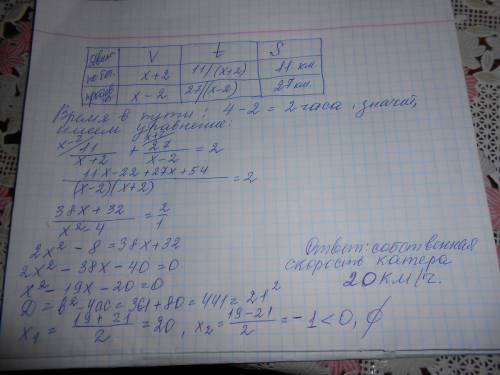 Движ. V t S
по теч. x+2 11/(x+2) 11 км
против x-2 27/(x-2) 27 км
Время в пути: 4-2=2 часа, значит,
имеем уравнение:
11/(x+2) + 27/(x-2) = 2
(11x-22+27x+54)/((x-2)(x+2)) = 2
(38x+32)/(x²-4) = 2/1
2x²-8=38x+32
2x²-38x-40=0
x²-19x-20=0
D=b²-4ac=361+80=441=21²
x₁=(19+21)/2=20, x₂=(19-21)/2=-1<0, ∅
Ответ: собственная
скорость катера
20 км/ч.